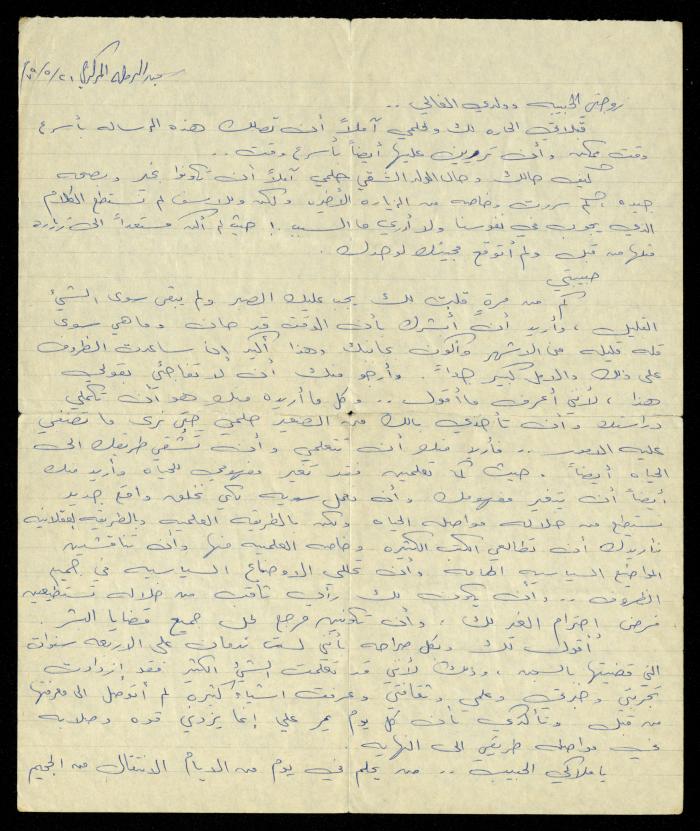 سجن الرملة المركزي ٢١/٥/
زوجتي الحبيبه وولدي الغالي ..
قبلاتي الحاره لك ولحلمي آملاً أن تصلك هذه الرساله بأسرع
وقت ممكن وأن تردين عليها أيضاً بأسرع وقت ..
كيف حالك وحال الولد الشقي حلمي آملاً أن تكونوا بخير وبصحه
جيده ، كم سررت وخاصه من الزياره الأخيره ولكن وللاسف لم نستطع الكلام
الذي يجول في نفوسنا ولا أدري ما السبب .! حيث لم أكن مستعداً الى زياره
مثلها من قبل ولم أتوقع مجيئك لوحدك .
حبيبتي
كم من مرةٍ قلت لك يجب عليك الصبر ولم يبقى سوى الشيئ
القليل ، وأريد أن أبشرك بأن الوقت قد حان وما هي سوى
قله قليله من الاشهر وأكون بجانبك وهذا أكيد إن ساعدت الظروف
على ذلك والامل كبير جداً . وأرجو منك أن لا تفاجئي بقولي
هذا ، لأنني أعرف ما أقول .. وكل ما أريده منك هو أن تكملي
دراستك وأن تأخذي بالك من الصغير حلمي حتى نرى ما تصفي
عليه الامور .. فأريد منك أن تتعلمي وأن تشقي طريقك الى
الحياه أيضاً . حيث كما تعلمين فقد تغير مفهومي للحياه وأريد منك
أيضاً أن يتغير مفهومك وأن نعمل سويه لكي نخلق واقع جديد
نستطيع من خلاله مواصله الحياه ولكن بالطريقه العلميه وبالطريقه العقلانيه
فأريدك أن تطالعي الكتب الكثيره وخاصه العلميه منها وأن تناقشين
المواضيع السياسيه الهامه وأن تحللي الاوضاع السياسيه في جميع
الظروف .. وأن يكون لك رأي ثاقب من خلاله تستطيعين
فرض إحترام الغير لك ، وأن تكونين مرجع لحل جميع قضايا البشر .
أقول لك وبكل صراحه بأنني لست ندمان على الاربعه سنوات
التي قضيتها بالسجن ، وذلك لأنني قد تعلمت الشيئ الكثير فقد إزدادت
تجربتي وخبرتي وعلمي وثقافتي وعرفت اشياء كثيره لم أتوصل الى معرفتها
من قبل وتأكدي بأن كل يوم يمر علي إنما يزدني قوه وصلابه
في مواصله طريقي الى النهايه
يا ملاكي الحبيب .. من يحلم في يوم من الايام الانتقال من الجحيم